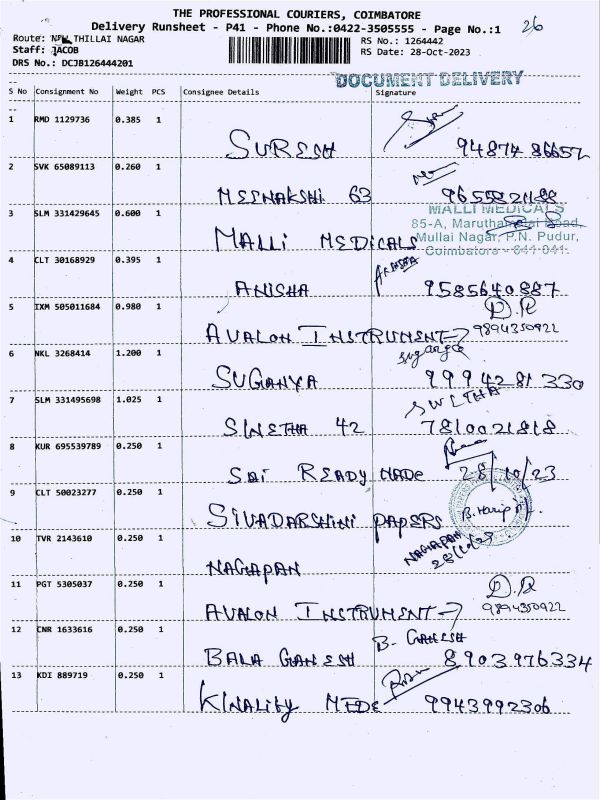 THE PROFESSIONAL COURIERS, COIMBATORE
26
Delivery Runsheet - P41 - Phone No.:0422-3505555 - Page No.:1
Route: NEW THILLAI NAGAR
RS No.: 1264442
Staff: JACOB
RS Date: 28-Oct-2023
DRS No.: DCJB126444201
DOCUMENT DELIVERY
S No Consignment No Weight PCS Consignee Details Signature
1 RMD 1129736 0.385 1
SURESH 94874 86657
2 SVK 65089113 0.260 1
MEENAKSHI 63 9655821188
3 SLM 331429645 0.600 1
MALLI MEDICALS
85-A, Road,
MALLI MEDICALS Mullai Nagar, P.N. Pudur,
Coimbatore - 641 041.
4 CLT 30168929 0.395 1
ANISHA
ANISHA 9585640887
5 IXM 505011684 0.980 1
D.R
AVALON INSTRUMENT 9894350922
6 NKL 3268414 1.200 1
suganya
SUGANYA 9994281330
7 SLM 331495698 1.025 1
SWETHA
SWETHA 42 7810021818
8 KUR 695539789 0.250 1
SRI READY MADE 28/10/23
9 CLT 50023277 0.250 1
SIVADARSHINI PAPERS
10 TVR 2143610 0.250 1
NAGAPAN
28/10/23
NAGAPAN
11 PGT 5305037 0.250 1
D.R
AVALON INSTRUMENT 9894350922
12 CNR 1633616 0.250 1
B. GANESH
BALA GANESH 8903976334
13 KDI 889719 0.250 1
KINALITY MEDE 9943992306